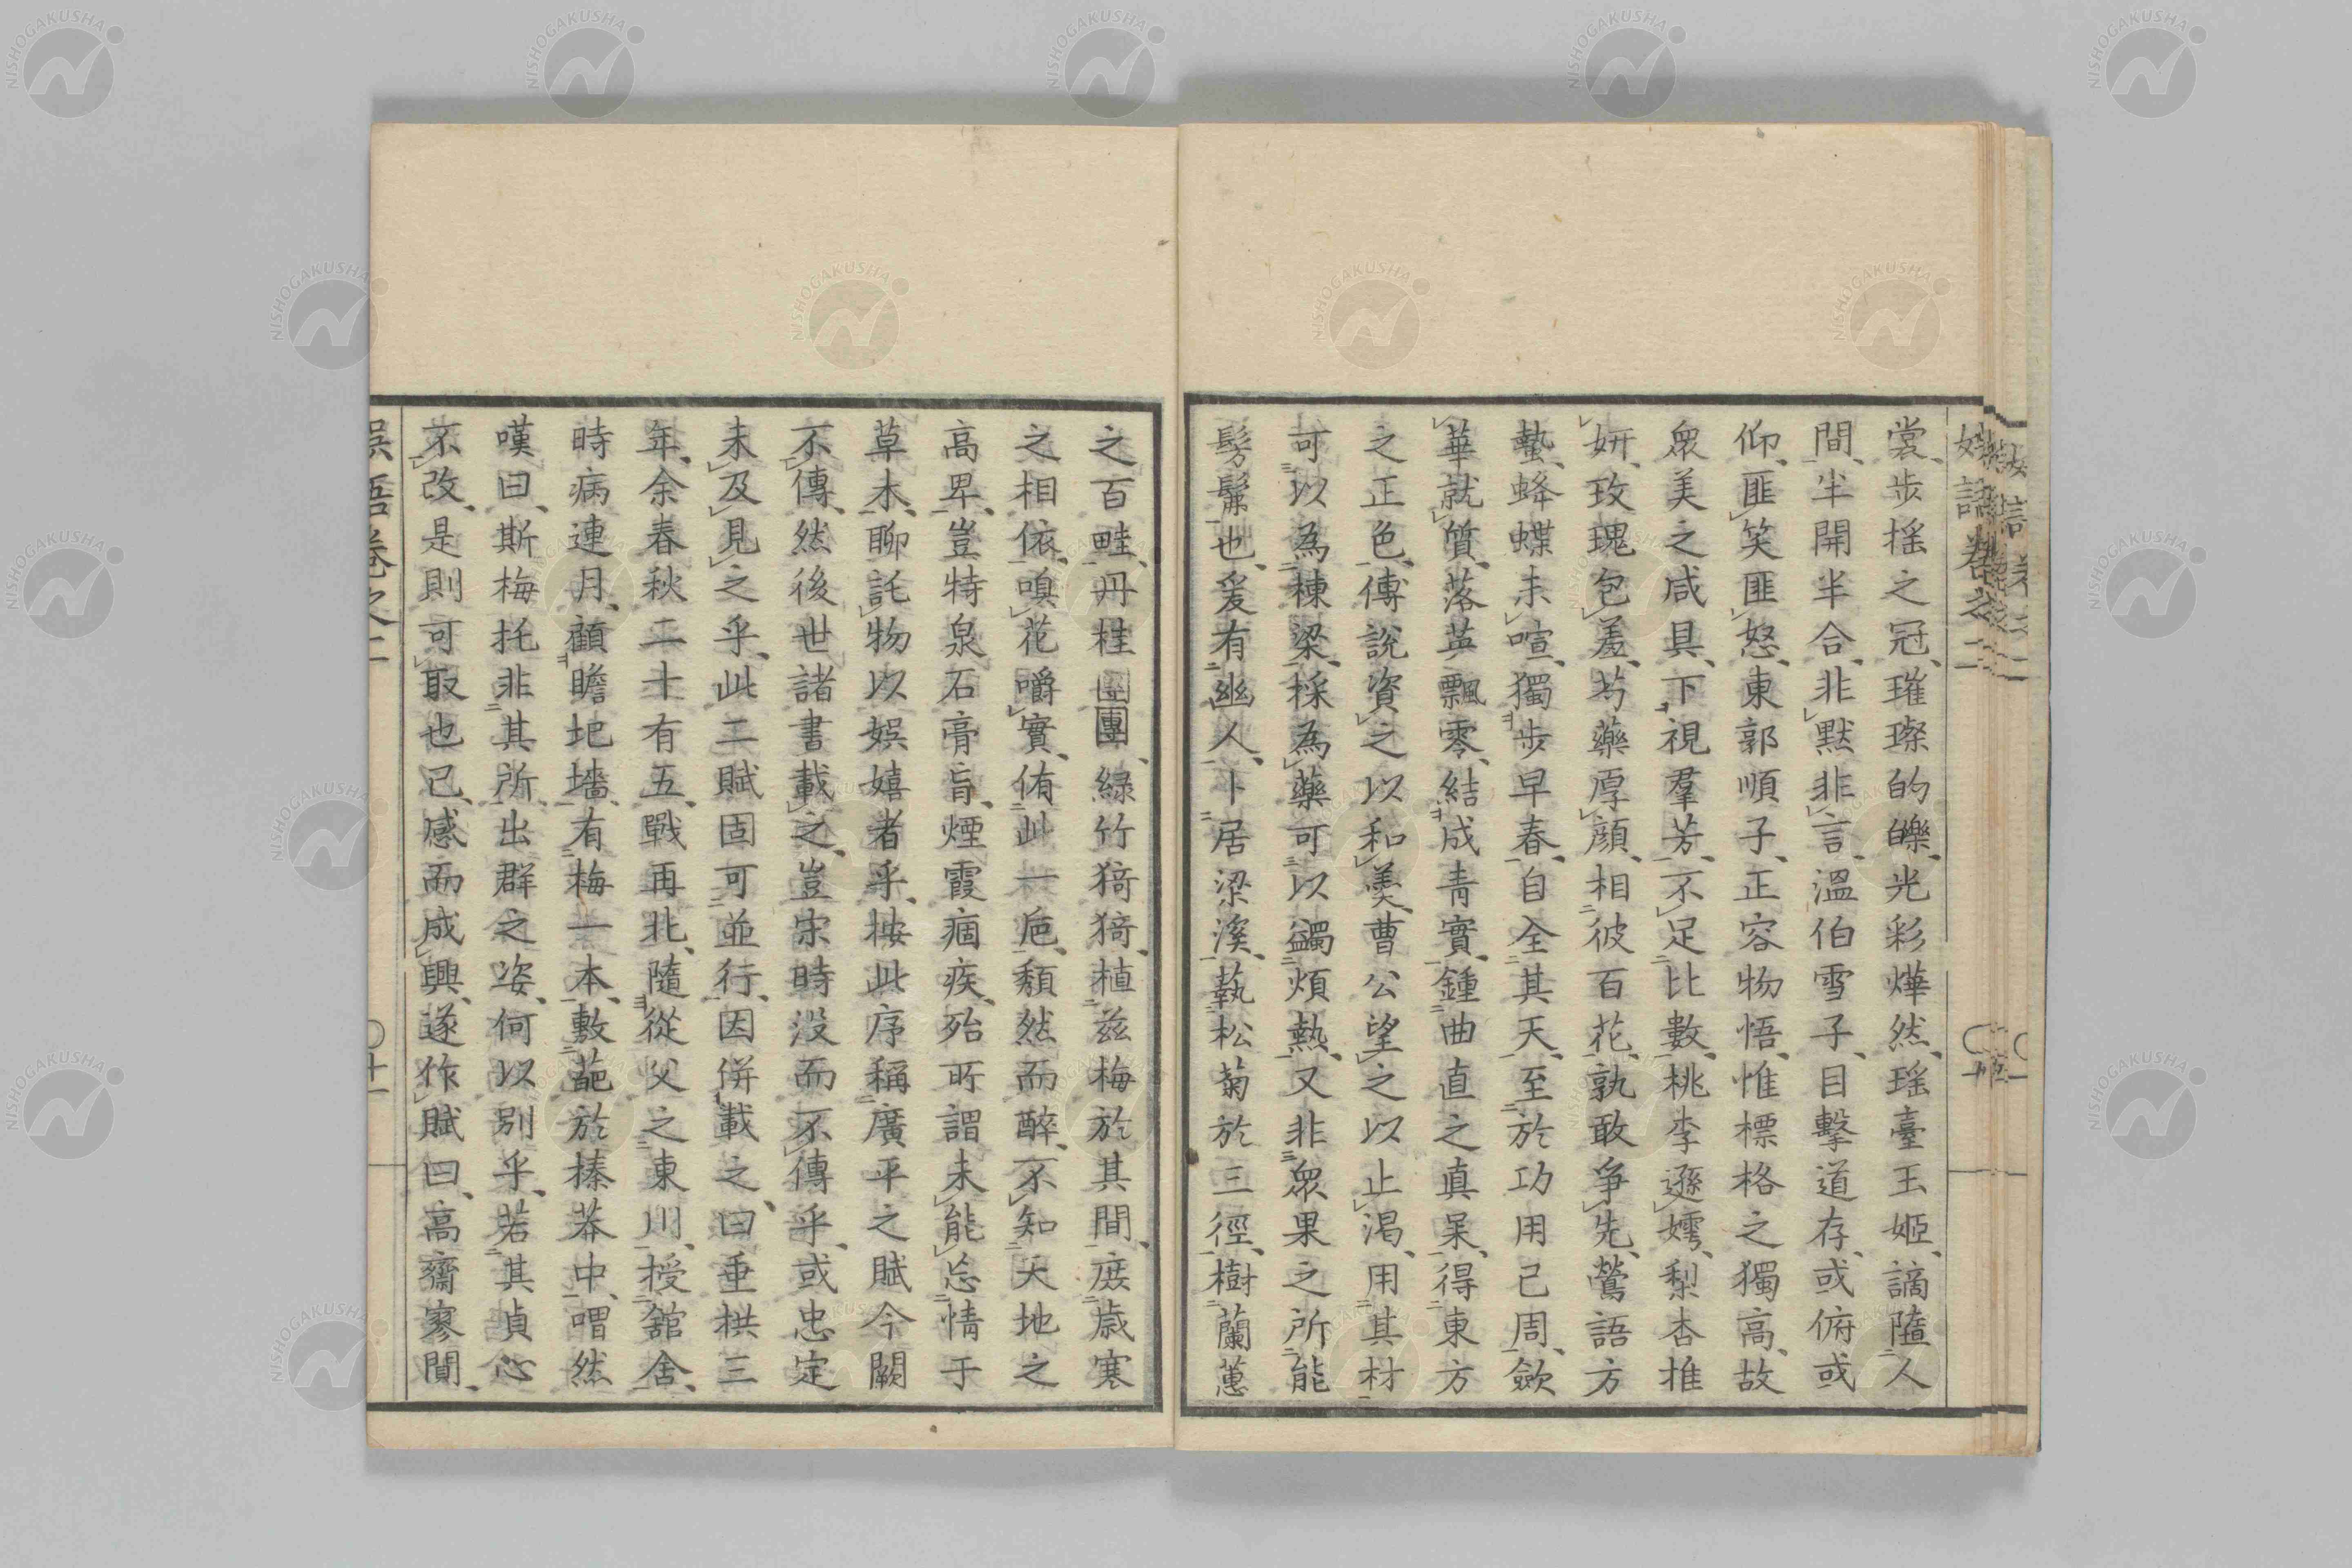 裳步搖之冠、璀璨的皪、光彩燁然、瑤臺王姬、謫墮人
間、半開半合、非默非言、溫伯雪子、目擊道存、或俯或
仰、匪笑匪怒、東郭順子、正容物悟、惟標格之獨高、故
衆美之咸具、下視羣芳、不足比數、桃李遜嫮、梨杏推
妍、玫瑰包羞、芍藥厚顔、相彼百花、孰敢爭先、鶯語方
蟄、蜂蝶未喧、獨步早春、自全其天、至於功用已周、歛
華就質、落英飄零、結成青實、鍾曲直之真杲、得東方
之正色、傅說資之以和羹、曹公望之以止渴、用其材
可以為棟梁、採為藥可以蠲煩熱、又非衆果之所能
髣髴也、爰有幽人、卜居梁溪、藝松菊於三徑、樹蘭蕙
之百畦、丹桂團團、綠竹猗猗、植茲梅於其間、庶歲寒
之相依、嗅花嚼實、侑此一巵、頽然而醉、不知天地之
高卑、豈特泉石膏肓、煙霞痼疾、殆所謂未能忘情于
草木、聊託物以娯嬉者乎、按此序稱廣平之賦今闕
不傳、然後世諸書載之、豈宋時没而不傳乎、或忠定
未及見之乎、此二賦固可並行、因併載之、曰垂拱三
年、余春秋二十有五、戰再北、隨從父之東川、授舘舍、
時病連月、顧瞻圯墻、有梅一本、敷蘤於榛莽中、喟然
嘆曰、斯梅托非其所、出群之姿、何以別乎、若其貞心
不改、是則可取也已、感而成興、遂作賦曰、高齋寥闃、